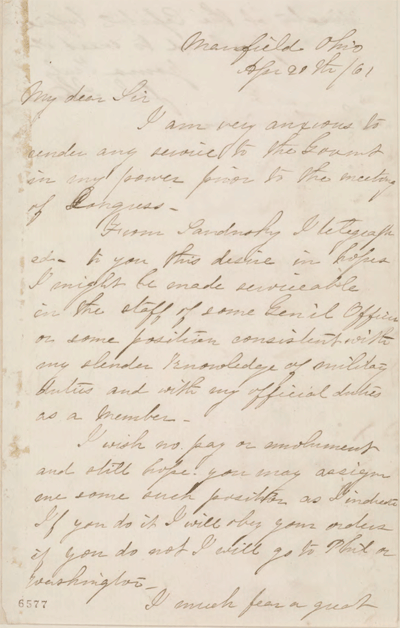 Mansfield Ohio
Apr 20th/61
My dear Sir
I am very anxious to
render any service to the Govmt
in my power prior to the meeting
of Congress -
From Sandusky I telegraph
ed - to you this desire in hopes
I might be made serviceable
in the staff of some Gen'l Officer
or some position consistent with
my slender knowledge of military
duties and with my official duties
as a Member -
I wish no pay or emolument
and still hope you may assign
me some such position as I indicate
If you do it I will obey your orders
if you do not I will go to Phil or
Washington -
I much fear a great
6577